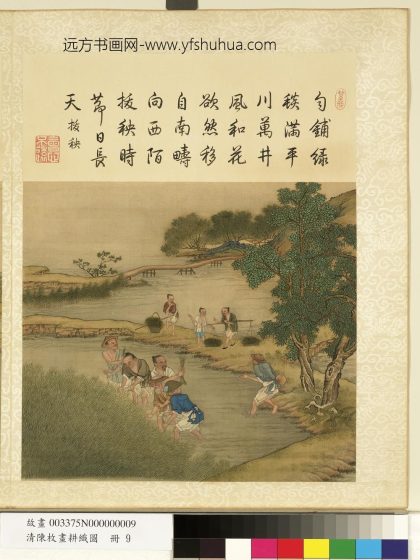 远方书画网-www.yfshuhua.com
勻鋪綠
毯滿平
川萬井
風和花
欲然移
自南疇
向西陌
拔秧時
節日長
天 拔秧
故畫 003375N000000009
清陳枚畫耕織圖 冊 9